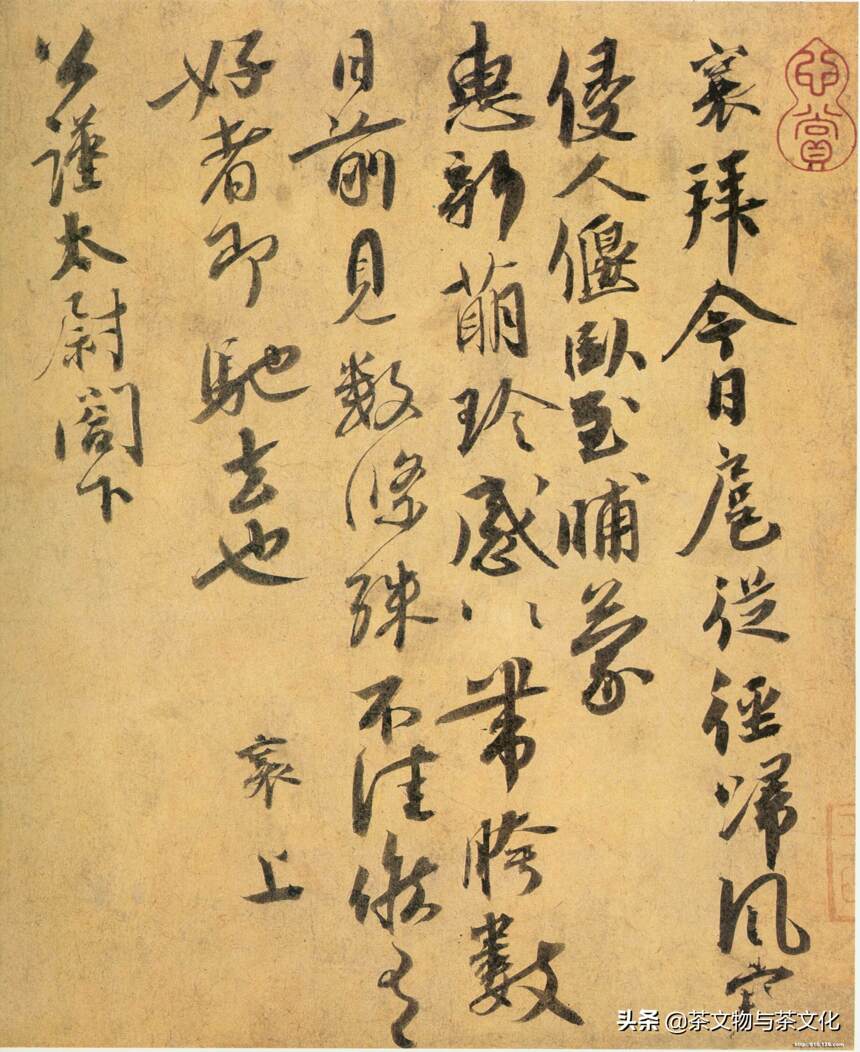 襄拜今日扈從徑歸風寒
侵人偃臥至晡蒙
惠新萌珍感〻帶胯數
日前見数條殊不佳候有
好者即馳去也
襄上
公謹太尉閣下
头条 @茶文物与茶文化